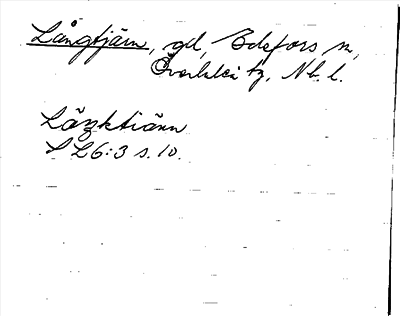 Långtjärn, gd, Edefors sn,
Överluleå tg, Nb. l.
Läŋktiärn
SL 6:3 s. 10.